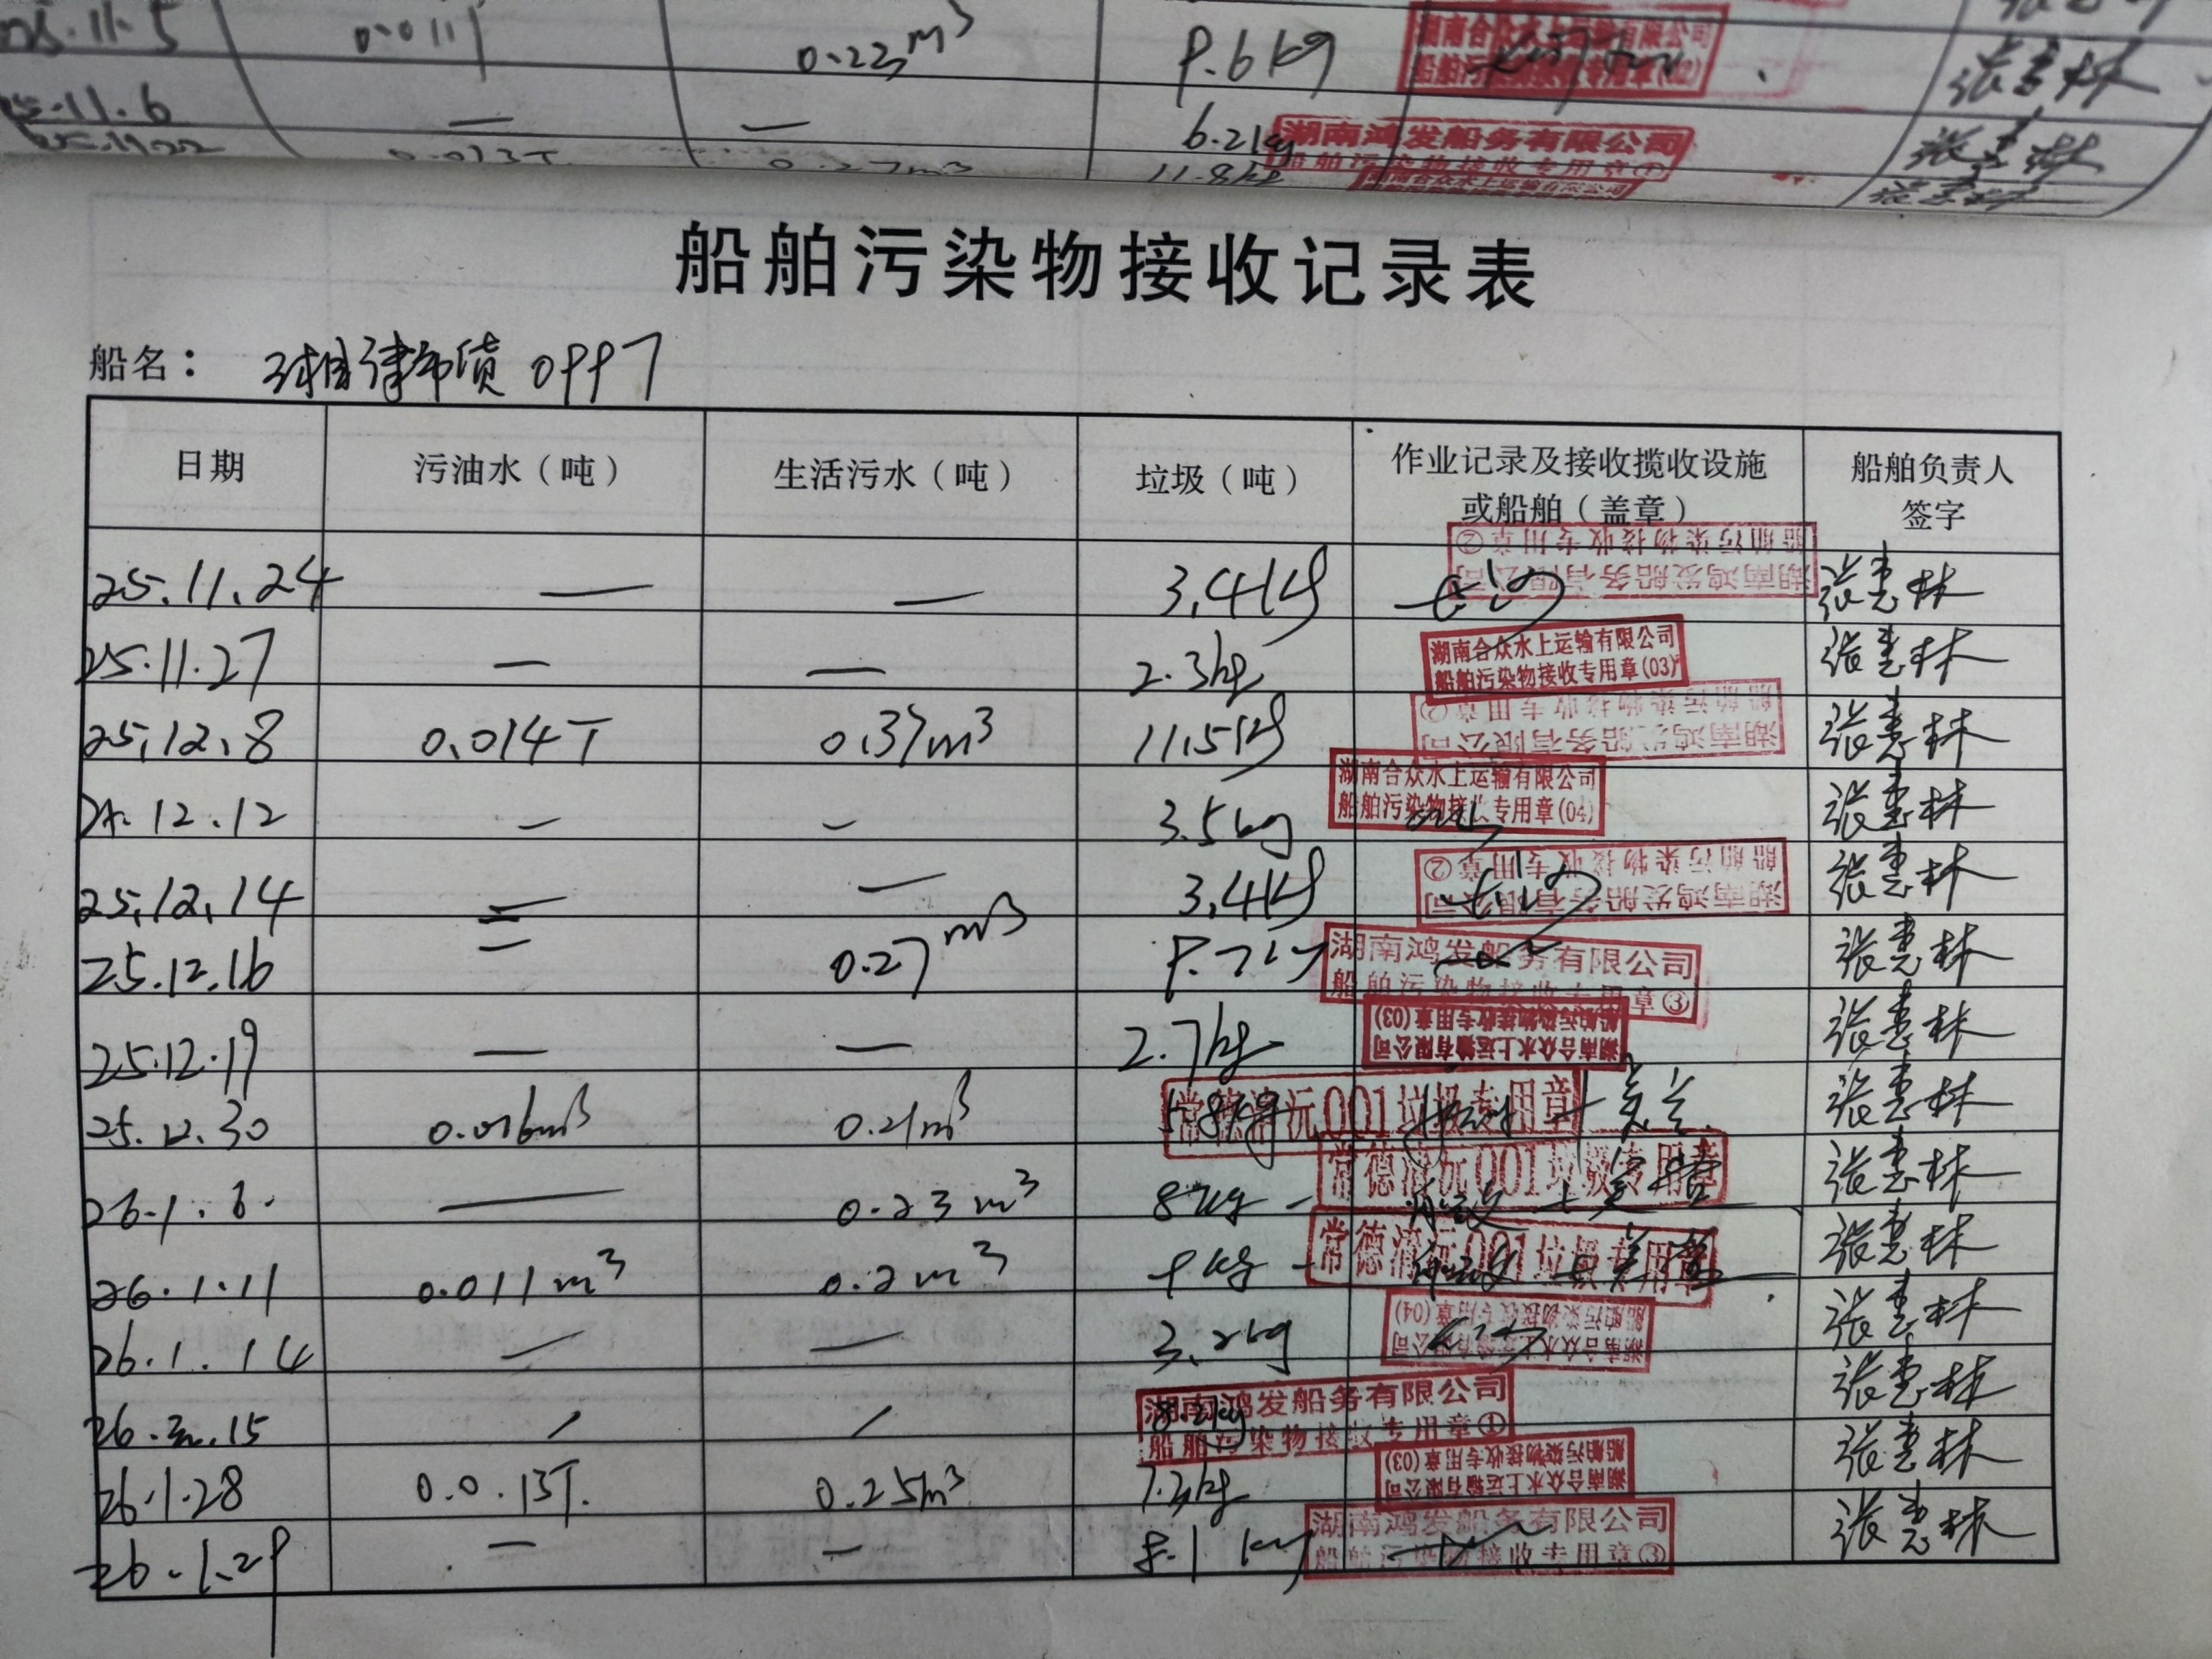 11.5 0.011 0.23m³ 9.6kg 湖南合众水上运输有限公司 船舶污染物接收专用章(02) 张惠林
11.6 — — 6.2kg 湖南鸿发船务有限公司 船舶污染物接收专用章① 张惠林
0.013T 0.27m³ 11.8kg 湖南合众水上运输有限公司 张惠林
船舶污染物接收记录表
船名： 湘津市货 0997
日期 污油水（吨） 生活污水（吨） 垃圾（吨） 作业记录及接收揽收设施 船舶负责人
或船舶（盖章） 签字
25.11.24 — — 3.4kg 湖南鸿发船务有限公司 船舶污染物接收专用章② 张惠林
25.11.27 — — 2.3kg 湖南合众水上运输有限公司 船舶污染物接收专用章(03) 张惠林
25.12.8 0.014T 0.37m³ 11.5kg 湖南鸿发船务有限公司 船舶污染物接收专用章② 张惠林
12.12 — — 3.5kg 湖南合众水上运输有限公司 船舶污染物接收专用章(04) 张惠林
25.12.14 — — 3.4kg 湖南鸿发船务有限公司 船舶污染物接收专用章② 张惠林
25.12.16 — 0.27m³ 湖南鸿发船务有限公司 船舶污染物接收专用章③ 张惠林
25.12.19 — — 2.7kg 湖南合众水上运输有限公司 船舶污染物接收专用章(03) 张惠林
25.12.30 0.016m³ 0.21m³ 常德清沅001垃圾专用章 张惠林
26.1.6. — 0.23m³ 常德清沅001垃圾专用章 张惠林
26.1.11 0.011m³ 0.2m³ 9kg 常德清沅001垃圾专用章 张惠林
26.1.14 — — 3.2kg 湖南合众水上运输有限公司 船舶污染物接收专用章(04) 张惠林
26. .15 / / 湖南鸿发船务有限公司 船舶污染物接收专用章① 张惠林
26.1.28 0.0.13T. 0.25m³ 7.3kg 湖南合众水上运输有限公司 船舶污染物接收专用章(03) 张惠林
26.1.29 — — 8.1kg 湖南鸿发船务有限公司 船舶污染物接收专用章③ 张惠林